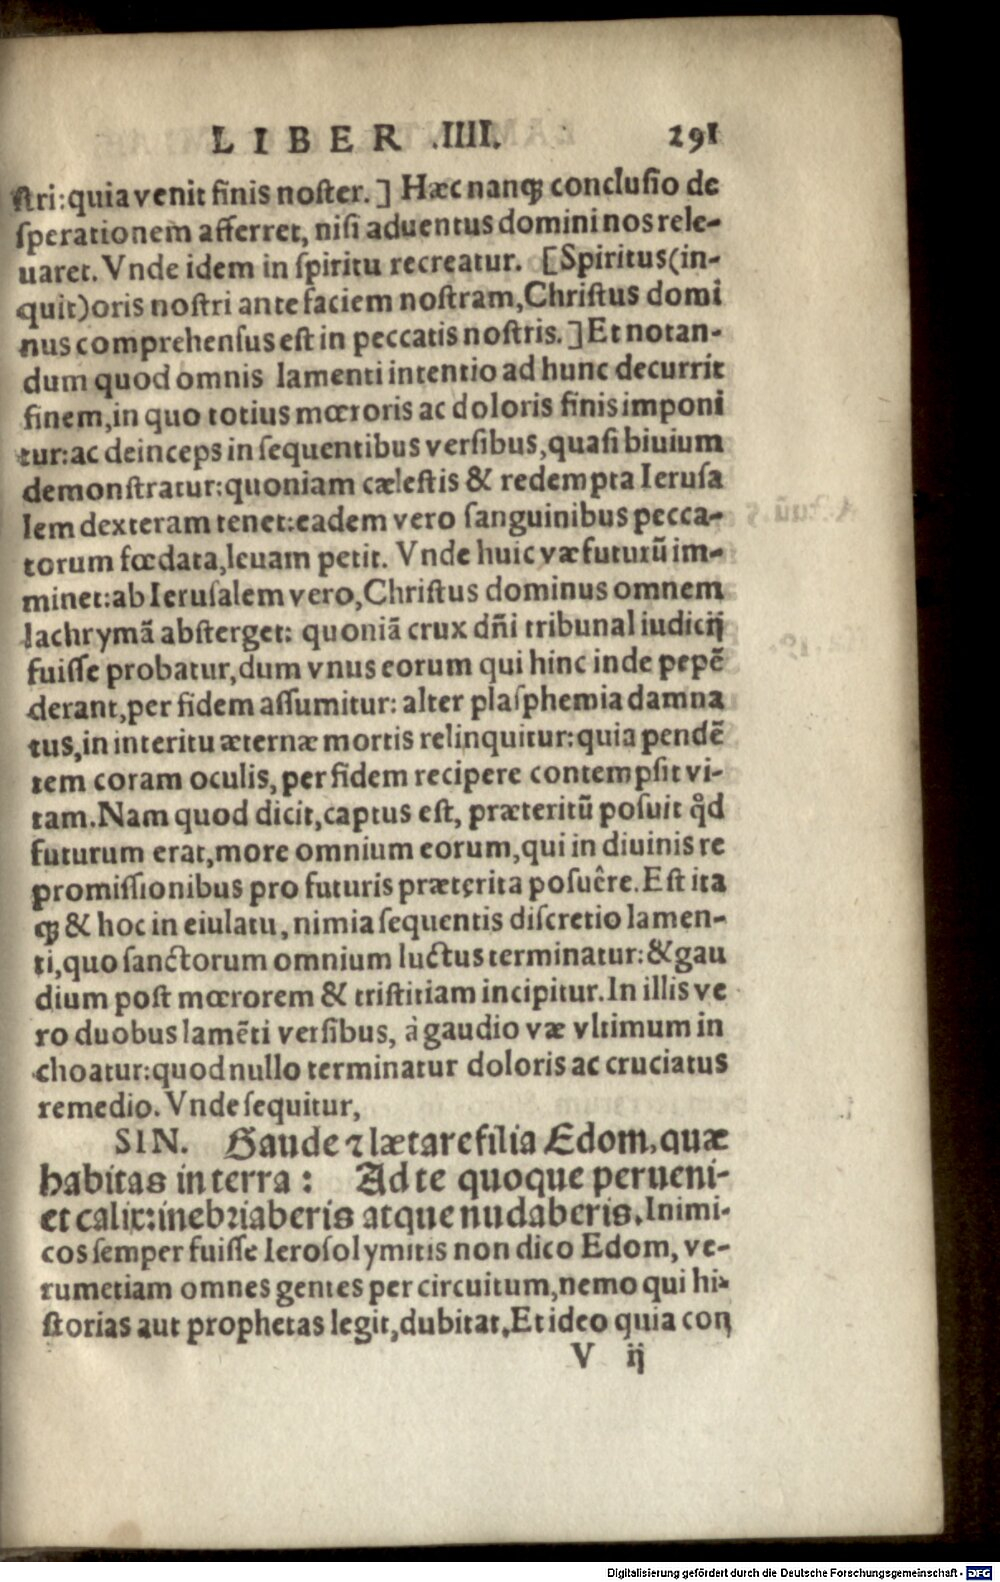 LIBER .IIII. 291
ſtri: quia venit finis noſter.] Hæc nanꝗ; concluſio de
ſperationem afferret, niſi aduentus domini nos rele-
uaret. Vnde idem in ſpiritu recreatur. [Spiritus(in-
quit)oris noſtri ante faciem noſtram, Chriſtus domi
nus comprehenſus eſt in peccatis noſtris.] Et notan-
dum quod omnis lamenti intentio ad hunc decurrit
finem, in quo totius mœroris ac doloris finis imponi
tur: ac deinceps in ſequentibus verſibus, quaſi biuium
demonſtratur: quoniam cæleſtis & redempta Ieruſa
lem dexteram tenet: eadem vero ſanguinibus pecca-
torum fœdata, leuam petit. Vnde huic væ futurū im-
minet: ab Ieruſalem vero, Chriſtus dominus omnem
lachrymā abſterget: quoniā crux dñi tribunal iudicij
fuiſſe probatur, dum vnus eorum qui hinc inde pepē
derant, per fidem aſſumitur: alter plaſphemia damna
tus, in interitu æternæ mortis relinquitur: quia pendē
tem coram oculis, per fidem recipere contempſit vi-
tam. Nam quod dicit, captus eſt, præteritū poſuit qd̛
futurum erat, more omnium eorum, qui in diuinis re
promiſſionibus pro futuris præterita poſuêre. Eſt ita
ꝗ; & hoc in eiulatu, nimia ſequentis diſcretio lamen-
ti, quo ſanctorum omnium luctus terminatur: & gau
dium poſt mœrorem & triſtitiam incipitur. In illis ve
ro duobus lamēti verſibus, à gaudio væ vltimum in
choatur: quod nullo terminatur doloris ac cruciatus
remedio. Vnde ſequitur,
SIN. Gaude ⁊ lætare filia Edom, quæ
habitas in terra: Ad te quoque perueni-
et calix: inebriaberis atque nudaberis. Inimi-
cos ſemper fuiſſe Ieroſolymitis non dico Edom, ve-
rumetiam omnes gentes per circuitum, nemo qui hi-
ſtorias aut prophetas legit, dubitat. Et ideo quia con
V ij
Digitalisierung gefördert durch die Deutsche Forschungsgemeinschaft - DFG